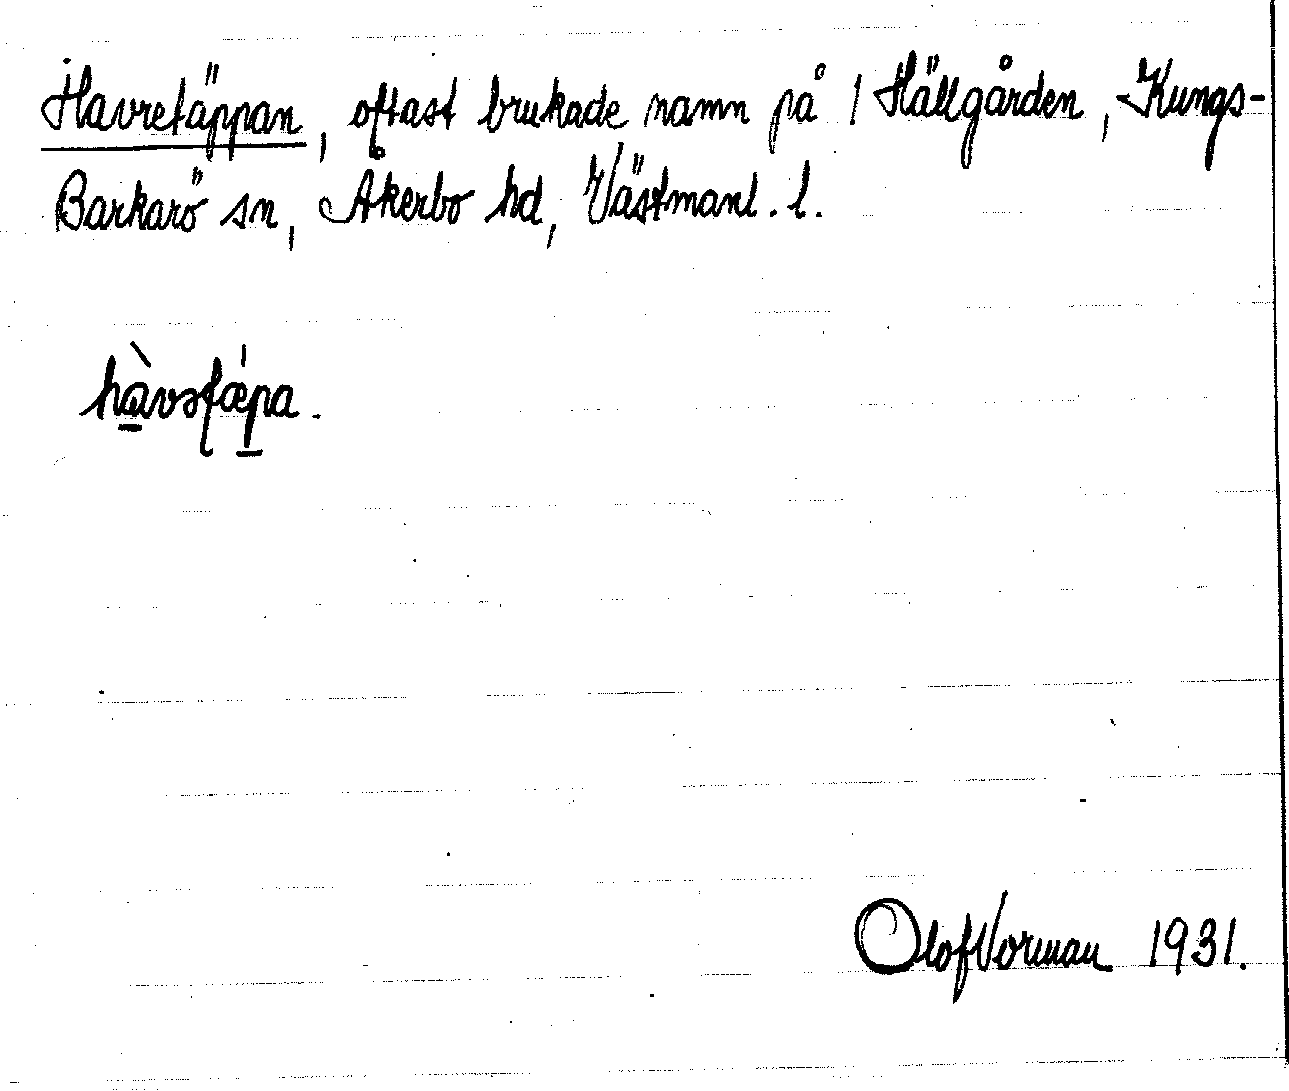 Havretäppan, oftast brukade namn på 1 Hällgården, Kungs-
Barkarö sn, Åkerbo hd, Västmanl. l.
Olof Vorman 1931.